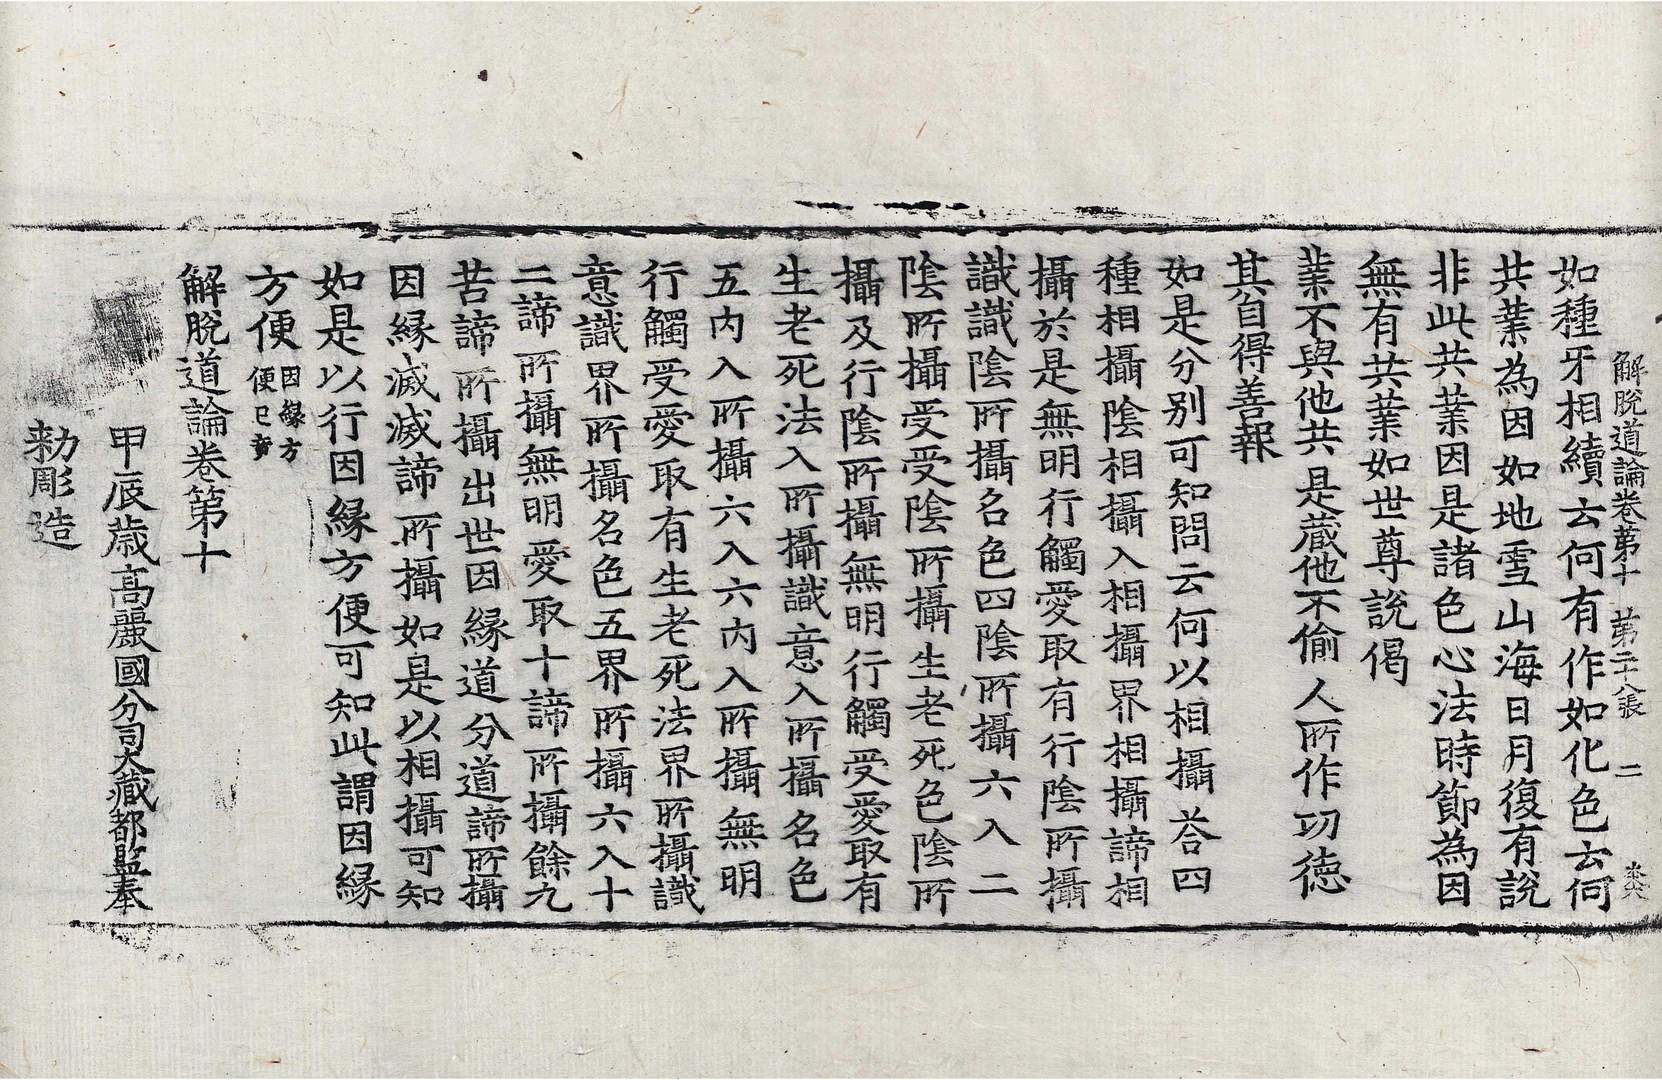 解脫道論卷第十 第二十八張 二
如種牙相續云何有作如化色云何
共業為因如地雪山海日月復有說
非此共業因是諸色心法時節為因
無有共業如世尊說偈
業不與他共 是藏他不偷 人所作功德
其自得善報
如是分別可知問云何以相攝荅四
種相攝陰相攝入相攝界相攝諦相
攝於是無明行觸愛取有行陰所攝
識識陰所攝名色四陰所攝六入二
陰所攝受受陰所攝生老死色陰所
攝及行陰所攝無明行觸受愛取有
生老死法入所攝識意入所攝名色
五內入所攝六入六內入所攝無明
行觸受愛取有生老死法界所攝識
意識界所攝名色五界所攝六入十
二諦所攝無明愛取十諦所攝餘九
苦諦所攝出世因緣道分道諦所攝
因緣滅滅諦所攝如是以相攝可知
如是以行因緣方便可知此謂因緣
方便因緣方便已竟
解脫道論卷第十
甲辰歲高麗國分司大藏都監奉
勑彫造